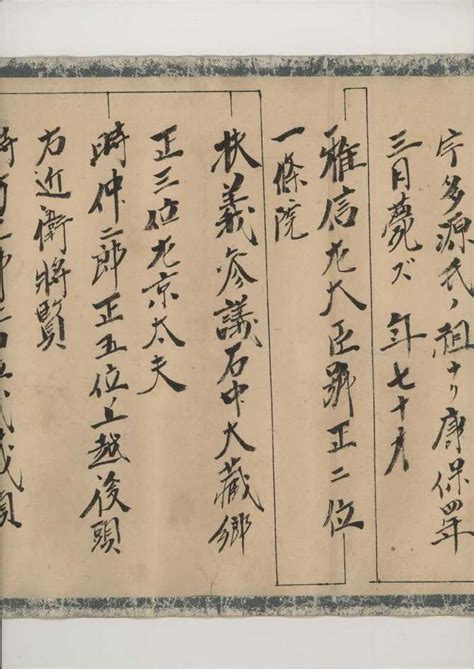 宇多源氏ノ祖ナリ康保四年
三月薨ズ 年七十才
雅信左大臣號正二位
一條院
扶義参議右中大蔵郷
正三位左京太夫
時仲二郎正五位上越後頭
右近衛將賢